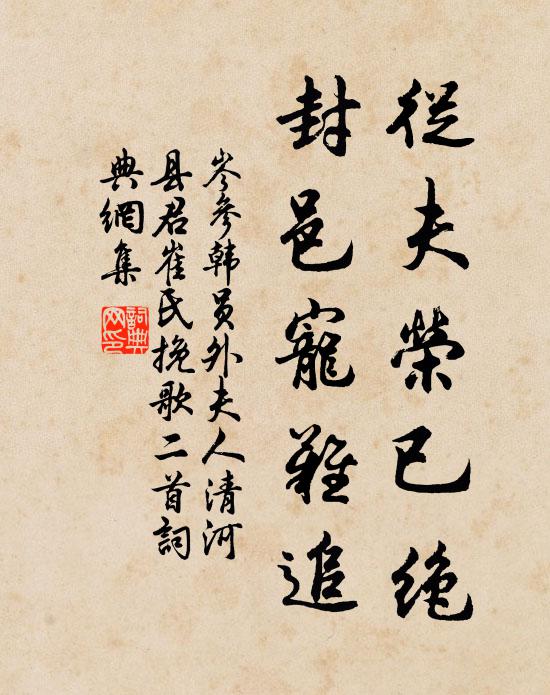 從夫榮已絶
封邑寵難追
岑參韓員外夫人清河
县君崔氏挽歌二首詞
典網集
詞典
网印